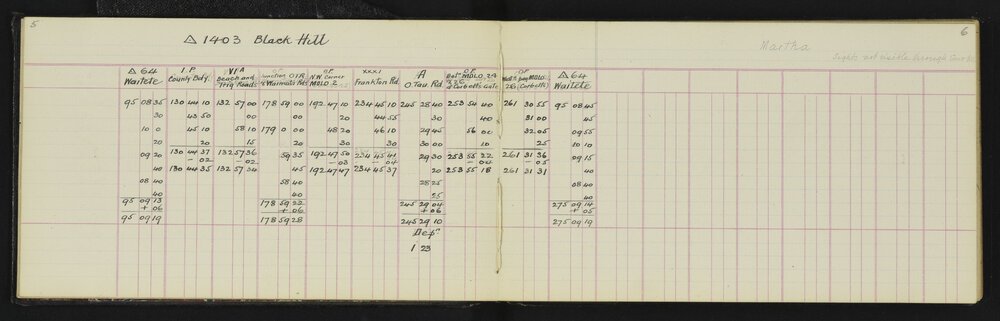 5
6
△ 1403 Black Hill
Martha
Sights not visible through
△ 64 Waitete
I P County Bdy.
VIA Beach and Trig Roads
Junction OTR & Waimata Rds
O.P. N.W. Corner MDLO 2
XXXI Frankton Rd.
A O.Tau. Rd.
O.P. Betn MDLO & Corbett's Gate
O.P. MDLO (Corbetts)
△ 64 Waitete
95 08 35 130 44 10 132 57 00 178 59 00 192 47 10 234 45 10 245 28 40 253 50 40 261 30 55 95 08 45
30 43 50 00 00 20 44 55 30 40 31 00 45
10 0 45 10 58 10 179 0 00 48 20 46 10 29 45 56 00 32 05 09 55
20 20 15 20 30 30 30 10 25 10 10
09 20 130 44 37 132 57 36 59 35 192 47 50 234 45 41 29 30 253 55 22 261 31 36 09 15
- 02 - 02 - 03 - 04 - 04 - 05
40 130 44 35 132 57 34 45 192 47 47 234 45 37 20 253 55 18 261 31 31 40
08 40 58 40 28 25 08 40
40 40 25 40
95 09 13 178 59 22 245 29 04 275 09 14
+ 06 + 06 + 06 + 05
95 09 19 178 59 28 245 29 10 275 09 19
Depn
1 23